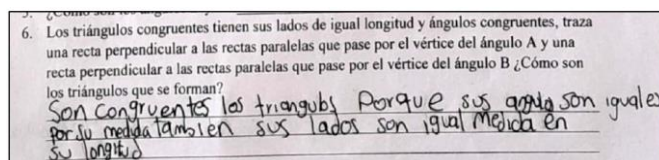 6. Los triángulos congruentes tienen sus lados de igual longitud y ángulos congruentes, traza
una recta perpendicular a las rectas paralelas que pase por el vértice del ángulo A y una
recta perpendicular a las rectas paralelas que pase por el vértice del ángulo B ¿Cómo son
los triángulos que se forman?
Son congruentes los triangubs Porque sus son iguales
por su medida también sus lados son igual Medida en
su longitud